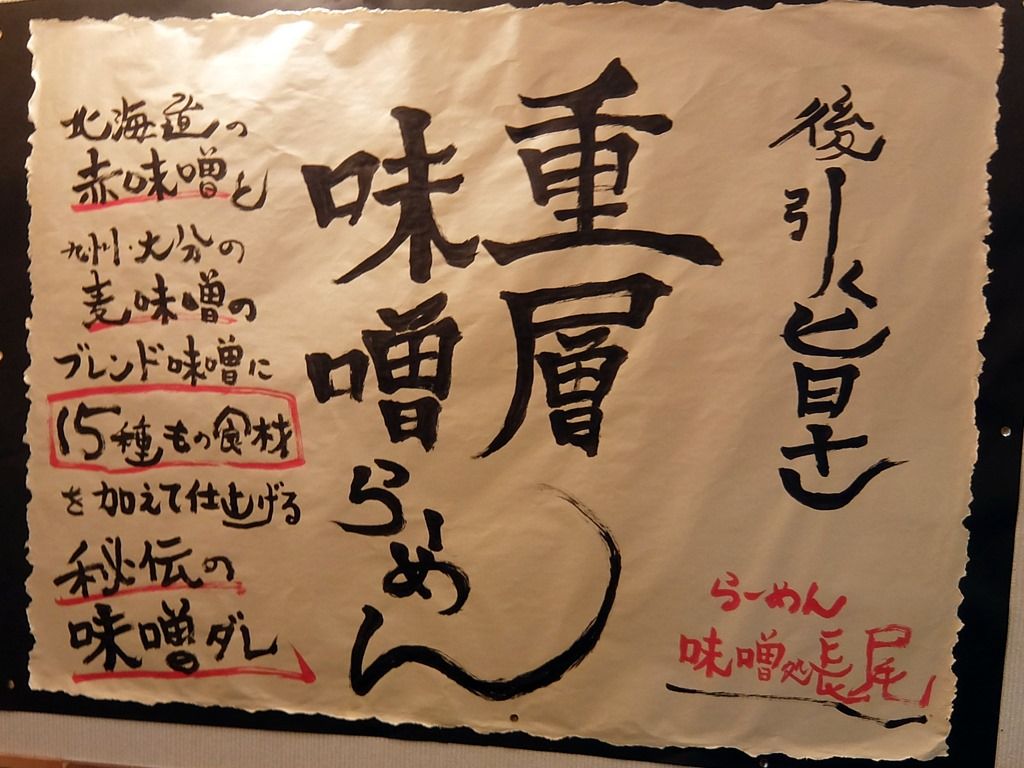 後引く旨さ
重層
味噌らーめん
北海道の
赤味噌と
九州・大分の
麦味噌の
ブレンド味噌に
15種もの食材
を加えて仕上げる
秘伝の
味噌ダレ
らーめん
味噌処長尾